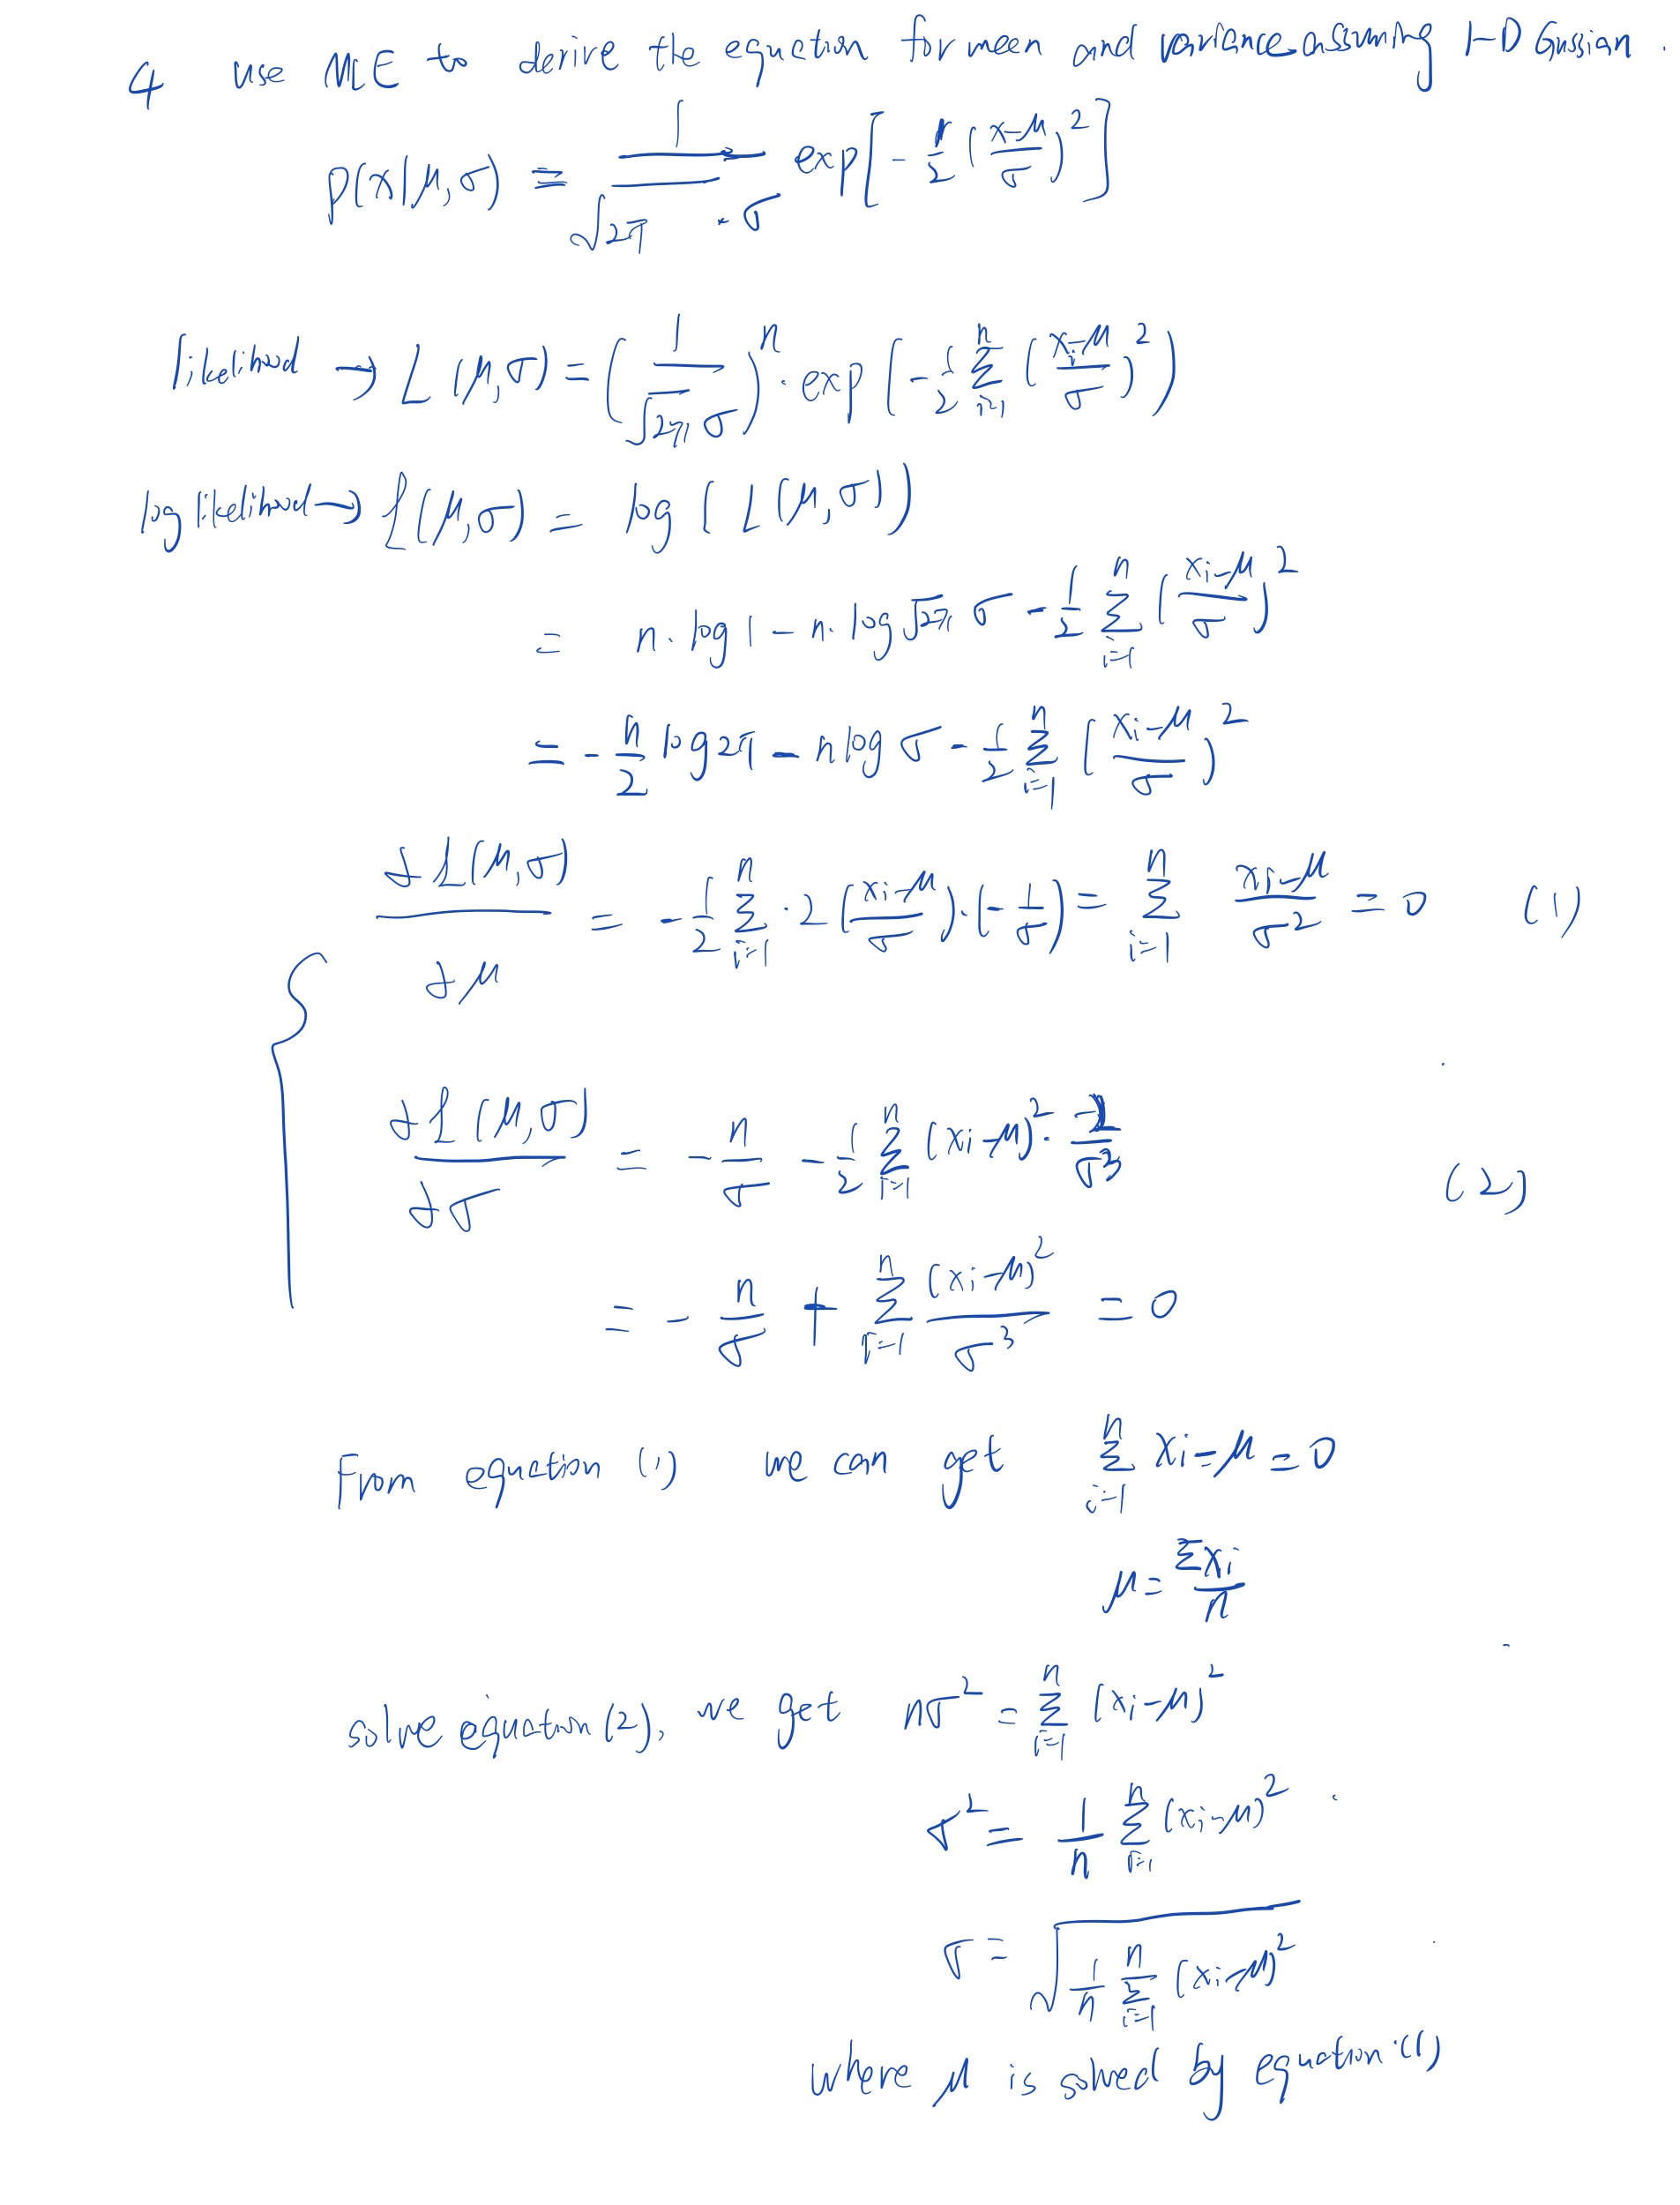 4 use MLE to derive the equation for meen and variance assuming 1-D Gussian.
p(x|μ,σ) = 1/(√2π · σ) exp[-1/2 ((x-μ)/σ)^2]
likelihood → L(μ,σ) = (1/(√2π σ))^n · exp(-1/2 Σ_{i=1}^n ((x_i-μ)/σ)^2)
log likelihood → l(μ,σ) = log(L(μ,σ))
= n·log1 - n·log√2π σ - 1/2 Σ_{i=1}^n ((x_i-μ)/σ)^2
= -n/2 log2π - nlogσ - 1/2 Σ_{i=1}^n ((x_i-μ)/σ)^2
∂l(μ,σ)/∂μ = -1/2 Σ_{i=1}^n ·2((x_i-μ)/σ)·(-1/σ) = Σ_{i=1}^n (x_i-μ)/σ^2 = 0 (1)
∂l(μ,σ)/∂σ = -n/σ - 1/2 Σ_{i=1}^n (x_i-μ)^2 · -2/σ^3 (2)
= -n/σ + Σ_{i=1}^n (x_i-μ)^2/σ^3 = 0
From equation (1) we can get Σ_{i=1}^n x_i-μ = 0
μ = Σx_i/n
solve equation (2), we get nσ^2 = Σ_{i=1}^n (x_i-μ)^2
σ^2 = 1/n Σ_{i=1}^n (x_i-μ)^2
σ = √(1/n Σ_{i=1}^n (x_i-μ)^2)
where μ is solved by equation (1)